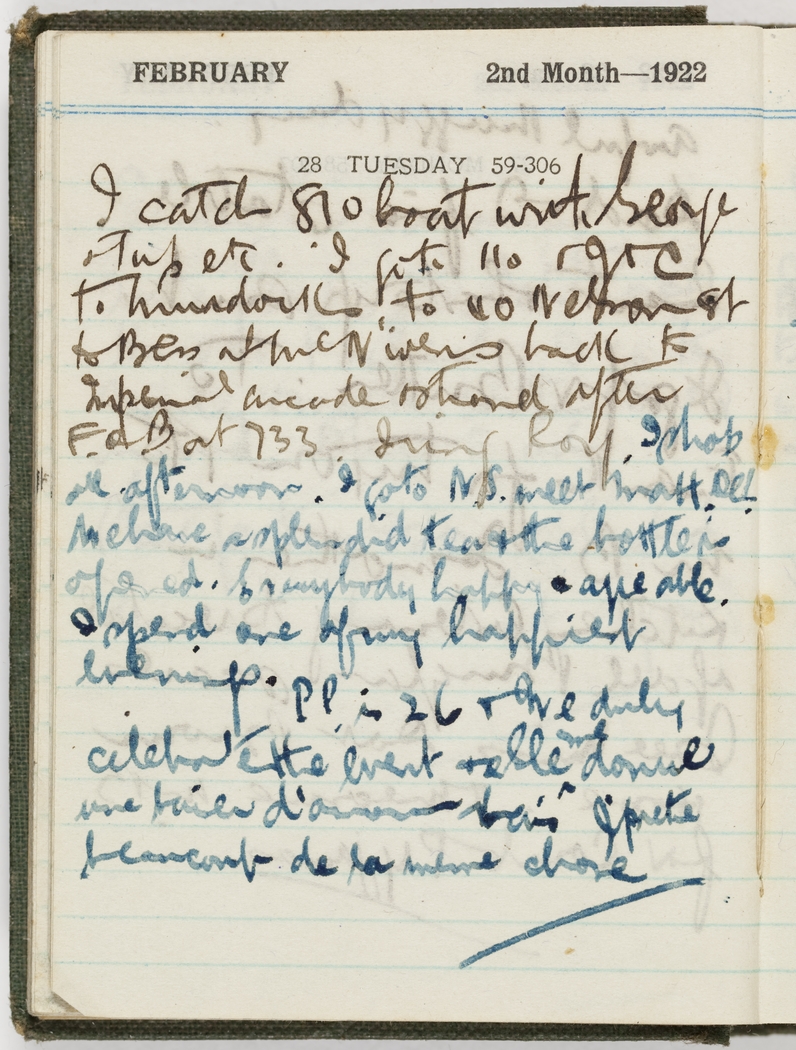 FEBRUARY 2nd Month—1922
28 TUESDAY 59-306
I catch 810 boat with George
etc. I go to 110
to Murdocks, to 110 Nelson St
to Bess at the back to
Imperial arcade after
F. a B at 733. Rory. I shop
all afternoon. I go to N.S. meet Matt.
We have a splendid tea & the bottle is
opened. Everybody happy
I spend one of my happiest
evenings.
P.P. is 26 & we duly
celebrate the event & elle me donne
une d'amour "bais" & prete
beaucoup de la meme chose